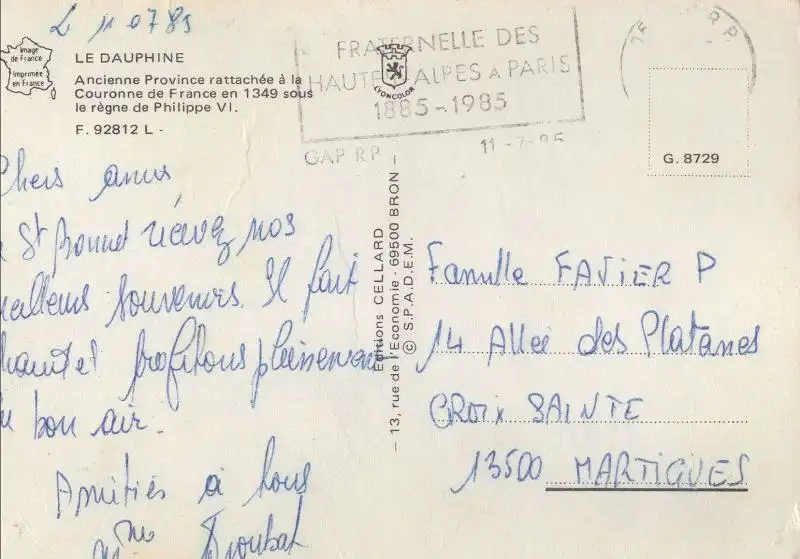 L 11 07 85
Image
de France
Imprimée
en France
LE DAUPHINE
Ancienne Province rattachée à la
Couronne de France en 1349 sous
le règne de Philippe VI.
F. 92812 L -
FRATERNELLE DES
HAUTES-ALPES A PARIS
1885-1985
GAP RP 11-7-85
LYONCOLOR
R P
G. 8729
Chers amis,
St Bonnet recevez nos
meilleurs souvenirs. Il fait
chaud et profitons pleinement
du bon air.
Amitiés à tous
Mme
Editions CELLARD
– 13, rue de l'Economie - 69500 BRON –
© S.P.A.D.E.M.
Famille FAVIER P
14 Allée des Platanes
CROIX SAINTE
13500 MARTIGUES